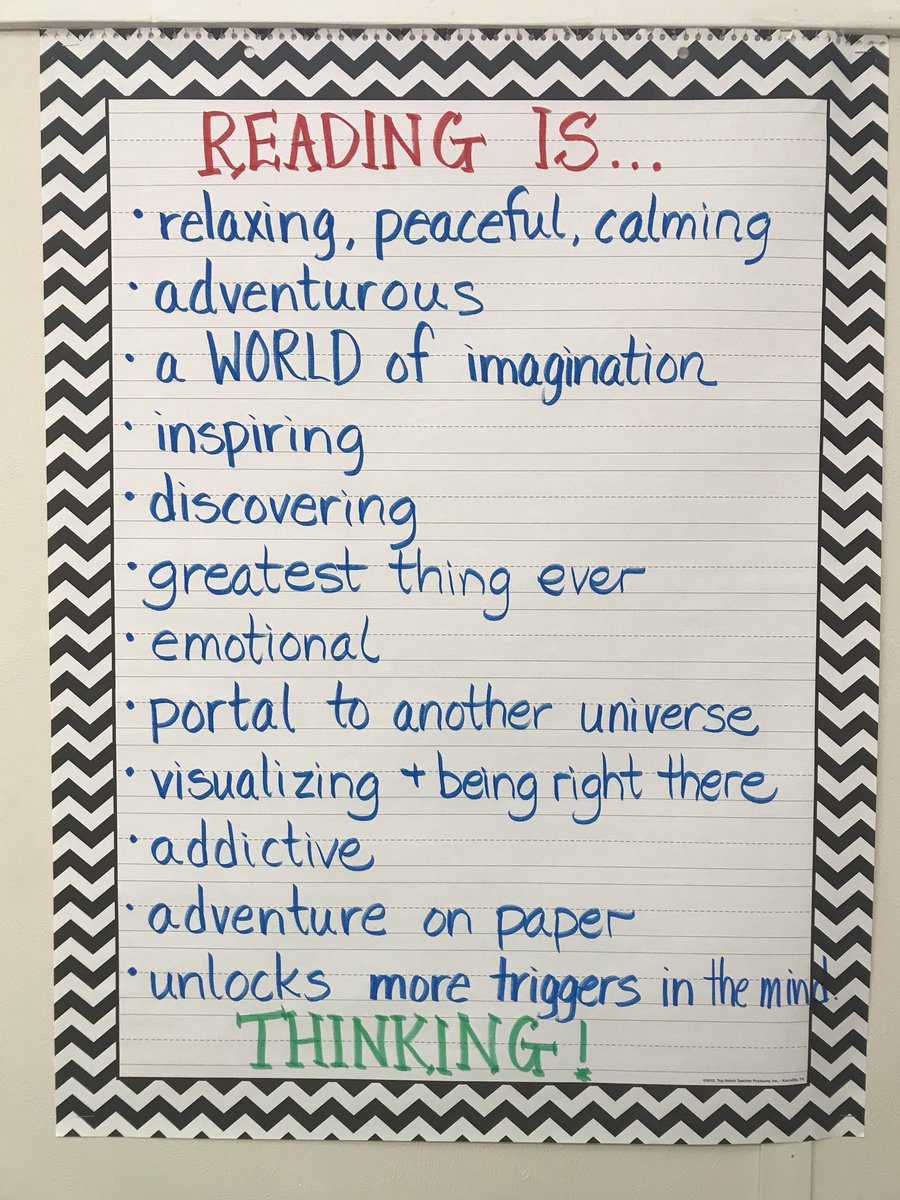 READING IS...
• relaxing, peaceful, calming
• adventurous
• a WORLD of imagination
• inspiring
• discovering
• greatest thing ever
• emotional
• portal to another universe
• visualizing + being right there
• addictive
• adventure on paper
• unlocks more triggers in the mind.
THINKING!
©2015, Top Notch Teacher Products, Inc. • Kerrville, TX